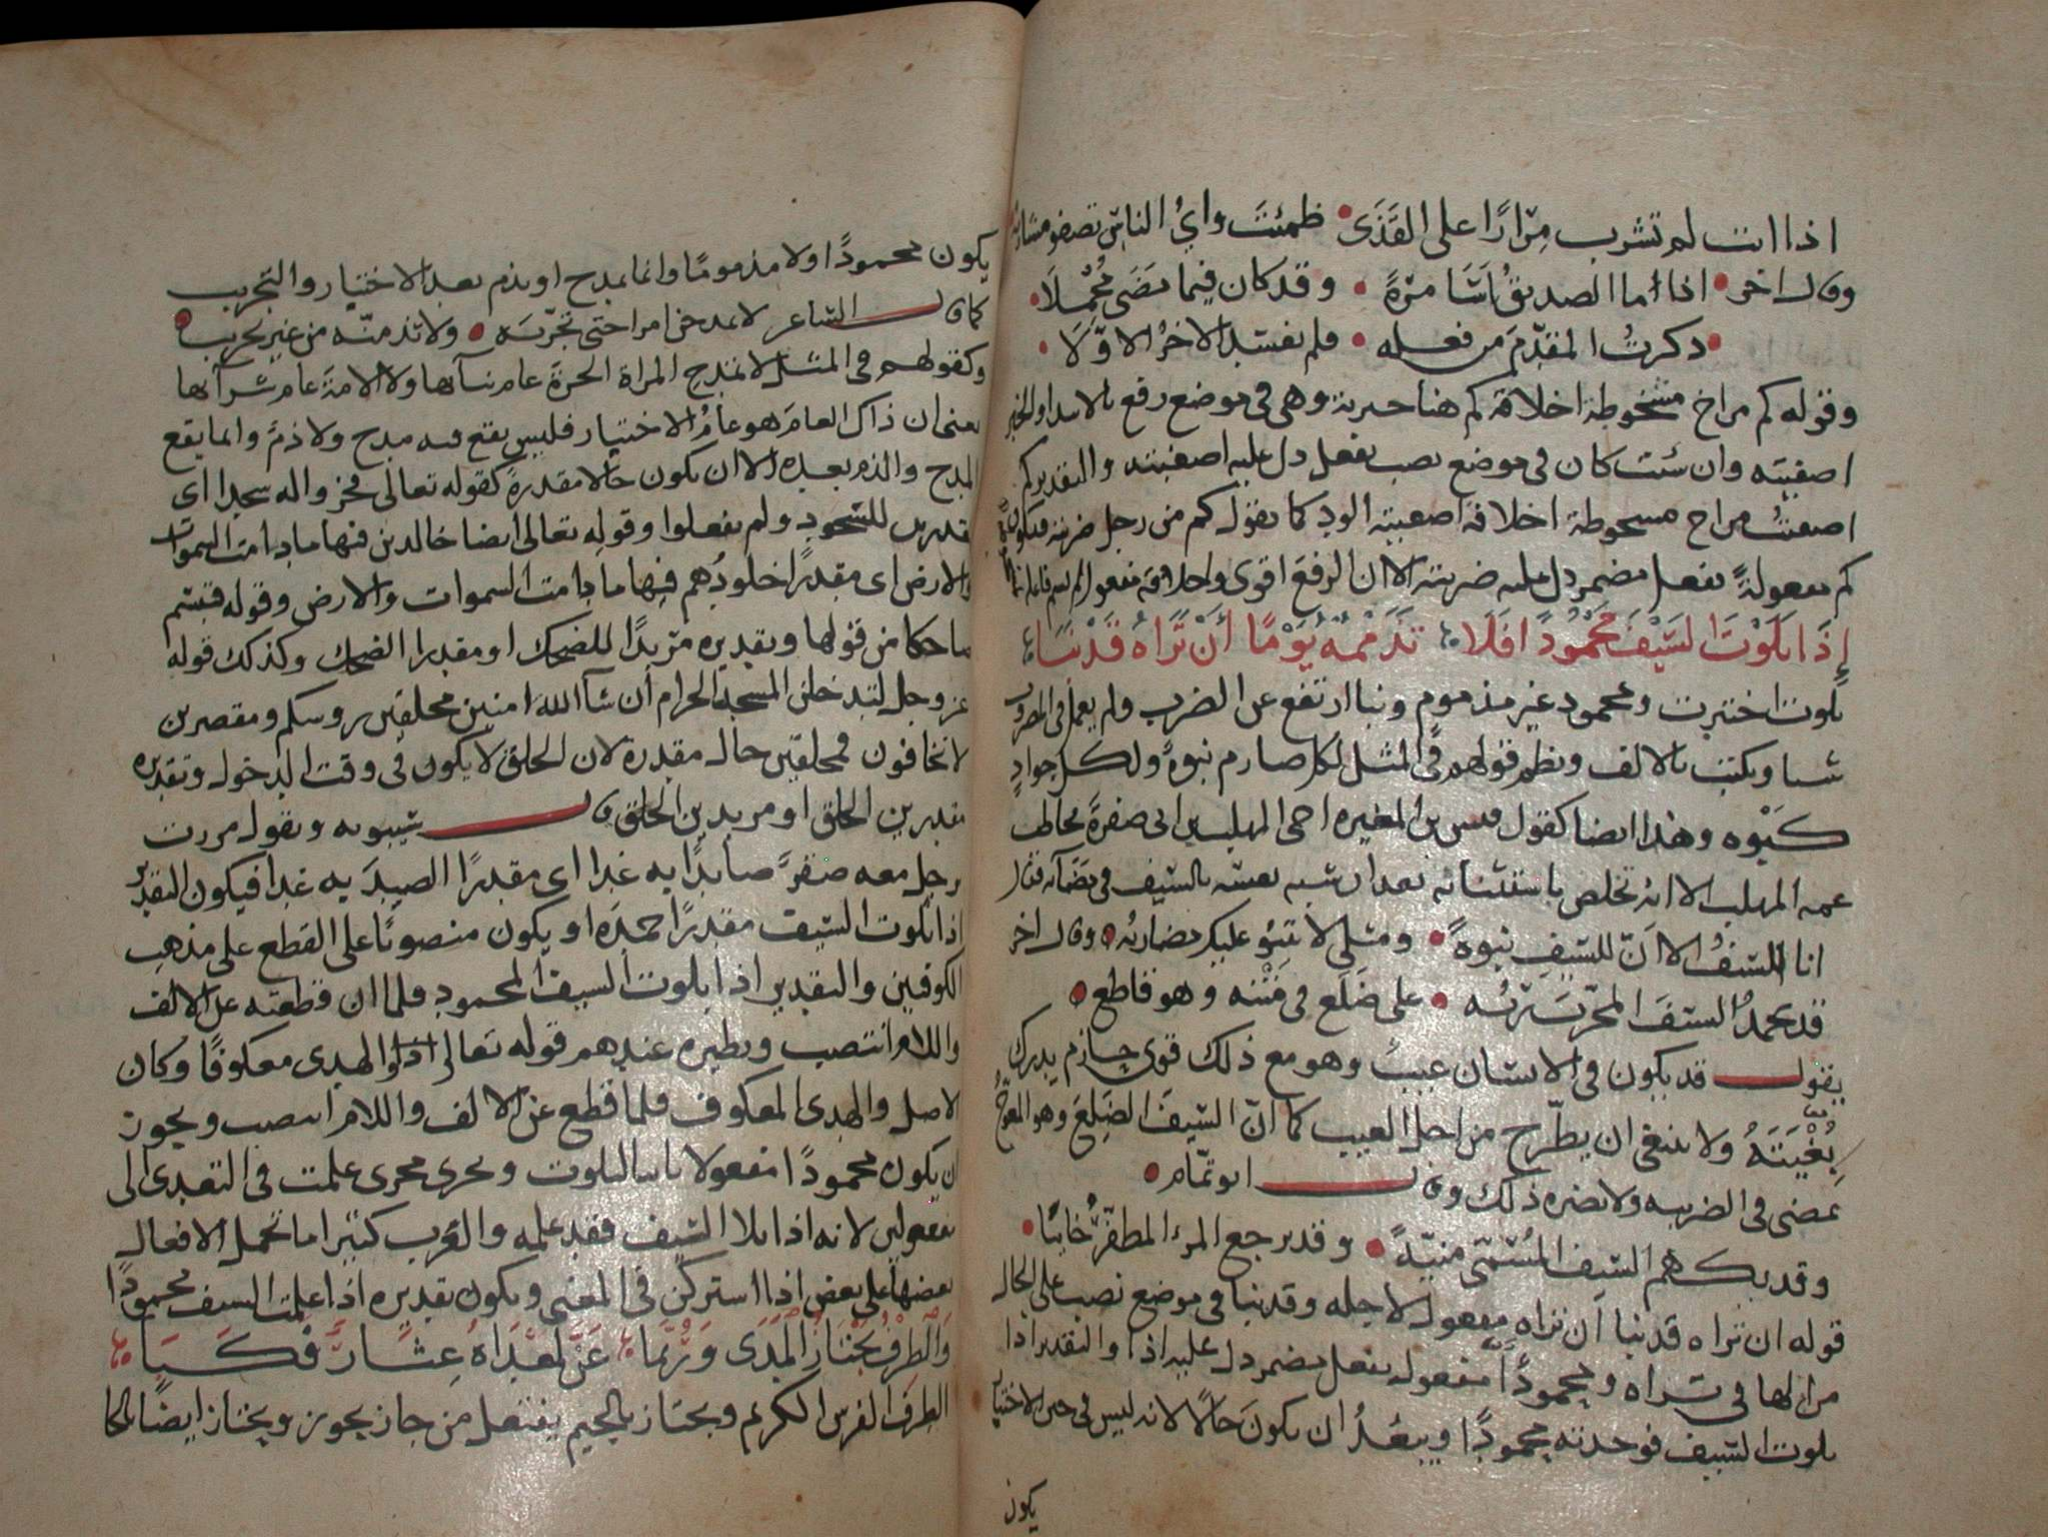 اذا انت لم تشرب مِرَارًا على القَذَى ظمئتَ واىُّ الناسِ تصفو مشاربه
وقال اخر اذا أما الصديقُ اسَا مرّةً وقد كان فيما مَضَى مُجْمِلَا
ذكرتُ المقدّمَ من فعله فلم يفسد الاخرُ الاوّلَا
وقوله كم من اخ مسخوطة اخلاقه كم هنا خبرية وهى فى موضع رفع بالابتدا والخبر
اصفيته وان شئت كان فى موضع نصب بفعل دل عليه اصفيته والتقدير كم
اصفيتُ من اخ مسخوطة اخلاقه اصفيته الود كما تقول كم من رجل ضربته فتكون
كم مفعولةً بفعل مضمر دل عليه ضربته الا ان الرفع اقوى واخلاقه مفعول لم يسم فاعله
إِذَا بَلَوْتَ السَّيْفَ مَحْمُودًا فَلَا تَذْمُمْهُ يَوْمًا أَنْ تَرَاهُ قَدْ نَبَا
بلوت اختبرت ومحمود غير مذموم ونبا ارتفع عن الضرب ولم يعمل فى المضروب
شيا ويكتب بالالف ونظم قولهم فى المثل لكل صارم نبوة ولكل جوادٍ
كَبْوه وهذا ايضا كقول قيس بن المغيره اخى المهلب بن ابى صفرة يخاطب
عمه المهلب الا انه تخلص باستثنائه بعد ان شبه نفسه بالسيف فى مضائه فقال
انا السيفُ الا اَنّ للسيفِ نبوةً ومثلى لا تنبو عليك مضاربُه وقال اخر
قد يحمدُ السيفَ المجرّبَ ربُّه على ضَلَع فى مَتْنه وهو قاطع
يقول قد يكون فى الانسان عيبٌ وهو مع ذلك قوى حازم يدرك
بُغْيَتَهُ ولا ينبغى ان يطّرح من اجل العيب كما انّ السيفَ الضَلِعَ وهو المعوَجُّ
يمضى فى الضريبه ولا يضره ذلك وقال ابو تمّام
وقد يكهم السيف المُسَمّى منيّةً وقد يرجع المرءُ المظفّرُ خائبًا
قوله ان تراه قد نبا اَن تراه مفعول لاجله وقد نبا فى موضع نصب على الحال
من الها فى تراه ومحمودًا مفعول بفعل مضمر دل عليه اذا والتقدير اذا
بلوت السيف فوجدته محمودًا ويبعُدُ ان يكونَ حالًا لانه ليس فى حين الاختبار
يكون
يكون محمودًا ولا مذمومًا وانما يمدح او يذم بعد الاختيار والتجريب
كما قال الشاعر لا تمدحن امرا حتى تجرّبَه ولا تذمنّه من غير تجريب
وكقولهم فى المثل لا تمدح المراة الحرة عام بنائها ولا الامة عام شرائها
يعنى ان ذاك العامَ هو عامُ الاختيار فليس يقع فيه مدح ولا ذمٌّ وانما يقع
المدح والذم بعده الا ان يكون حالا مقدرةً كقوله تعالى فخروا له سجدا اى
مقدرين للسّجود ولم يفعلوا وقوله تعالى ايضا خالدين فيها ما دامت السموات
والارض اى مقدرًا خلودُهم فيها ما دامت السموات والارض وقوله فتبسم
ضاحكا من قولها وتقديره مريدًا للضحك او مقدرا الضحك وكذلك قوله
عز وجل لتدخلن المسجد الحرام ان شآ الله امنين محلقين روسكم ومقصرين
لا تخافون فمحلقين حال مقدرة لان الحلق لا يكون فى وقت الدخول وتقديره
مقدرين الحلق او مريدين الحلق قال سيبويه وتقول مررت
برجل معه صقرٌ صائدًا به غدا اى مقدرًا الصيدَ به غدا فيكون التقدير
اذا بلوت السيف مقدرًا حمدَه او يكون منصوبًا على القطع على مذهب
الكوفيين والتقدير اذا بلوت السيف المحمود فلما ان قطعته عن الالف
واللام انتصب ونظيره عندهم قوله تعالى والهدى معكوفًا وكان
الاصل والهدى المعكوف فلما قطع عن الالف واللام انتصب ويجوز
ان يكون محمودًا مفعولا ثانيا لبلوت وتجرى مجرى علمت فى التعدى الى
مفعولين لانه اذا بلا السيف فقد علمه والعرب كثيرا ما تحمل الافعال
بعضها على بعض اذا اشتركن فى المعنى ويكون تقديره اذا علمت السيف محمودًا
وَالطِّرْفُ يَجْتَازُ الْمَدَى وَرُبَّمَا عَنَّ لِمَعْدَاهُ عِثَارٌ فَكَبَا
الطِرف الفرس الكريم ويجتاز بالجيم يفتعل من جاز يجوز ويختار ايضًا بالخا